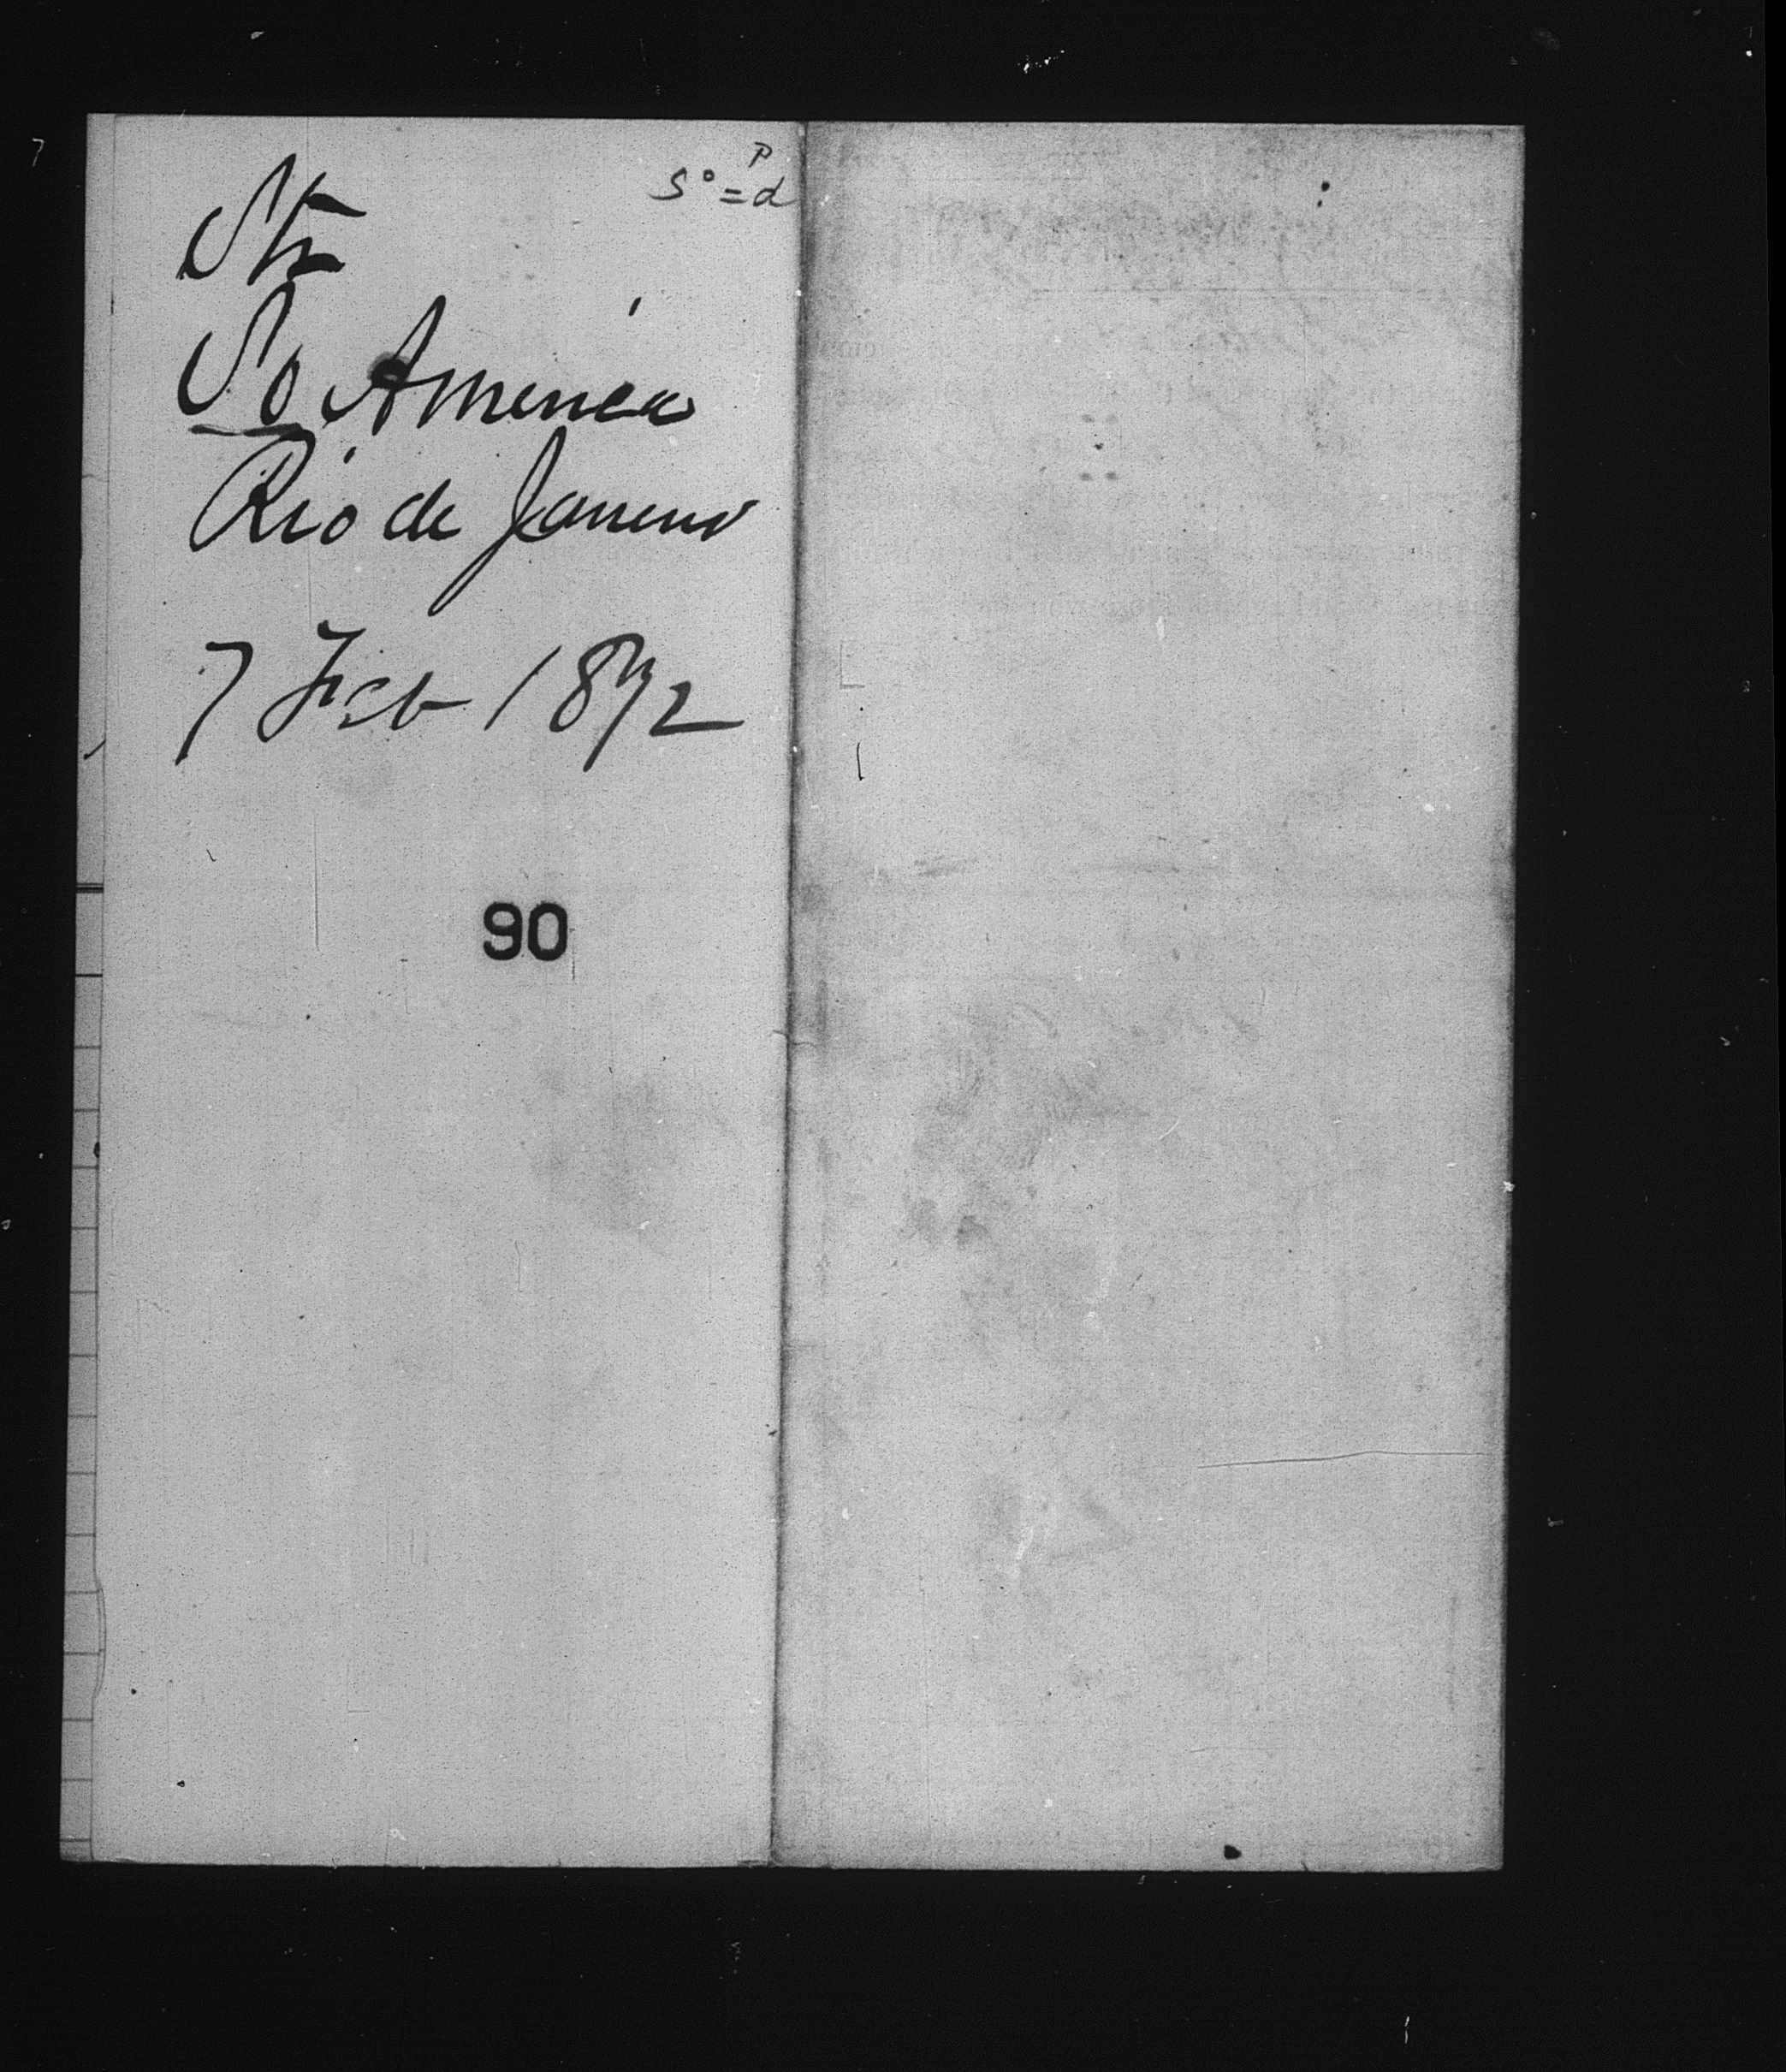 S° = d
P
Str
So America
Rio de Janeiro
7 Feb 1872
90